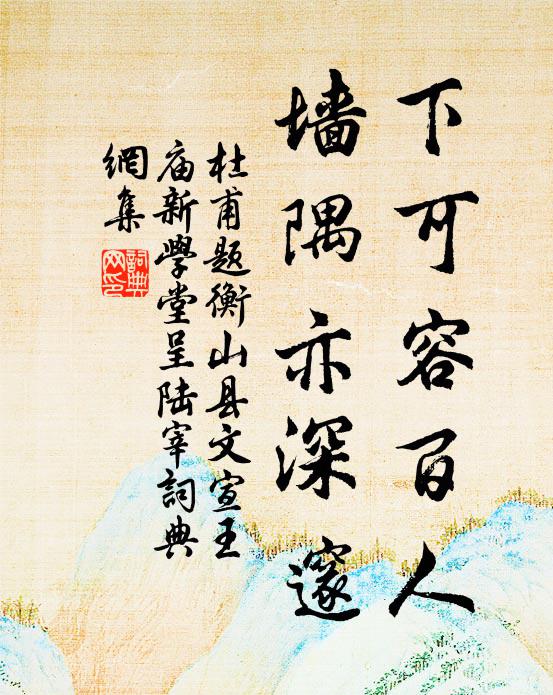 下可容百人
墙隅亦深邃
杜甫题衡山县文宣王
庙新學堂呈陆宰詞典
網集
詞典
网印